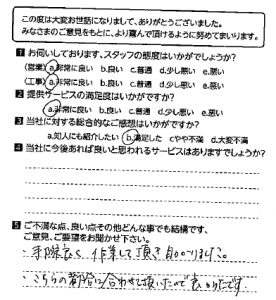 この度は大変お世話になりまして、ありがとうございました。
みなさまのご意見をもとに、より喜んで頂けるように努めてまいります。
1 お伺いしております、スタッフの態度はいかがでしょうか?
(営業) a.非常に良い b.良い c.普通 d.少し悪い e.悪い
(工事) a.非常に良い b.良い c.普通 d.少し悪い e.悪い
2 提供サービスの満足度はいかがですか?
a.非常に良い b.良い c.普通 d.少し悪い e.悪い
3 当社に対する総合的なご感想はいかがですか?
a.知人にも紹介したい b.満足した c.やや不満 d.大変不満
4 当社に今後あれば良いと思われるサービスはありますでしょうか?
5 ご不満な点、良い点その他どんな事でも結構です、
ご意見、ご要望をお聞かせ下さい。
・手際よく作業して頂き助かりました。
・こちらの都合に合わせて頂いたので良かったです。